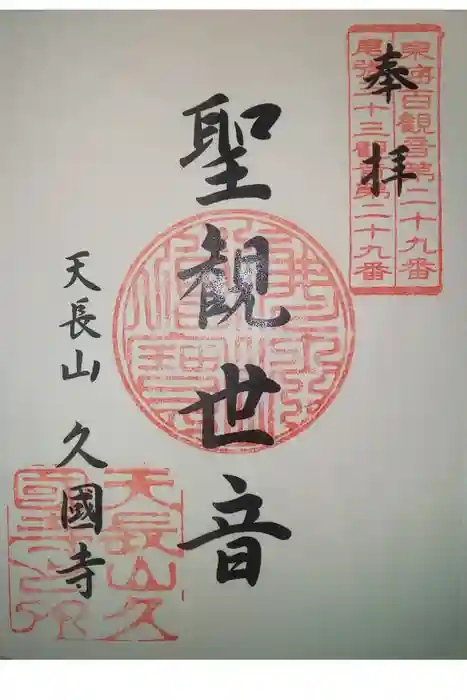 奉拝
東海百観音第二十九番
尾張三十三観音第二十九番
聖観世音
天長山 久國寺
天長山久
國寺之印